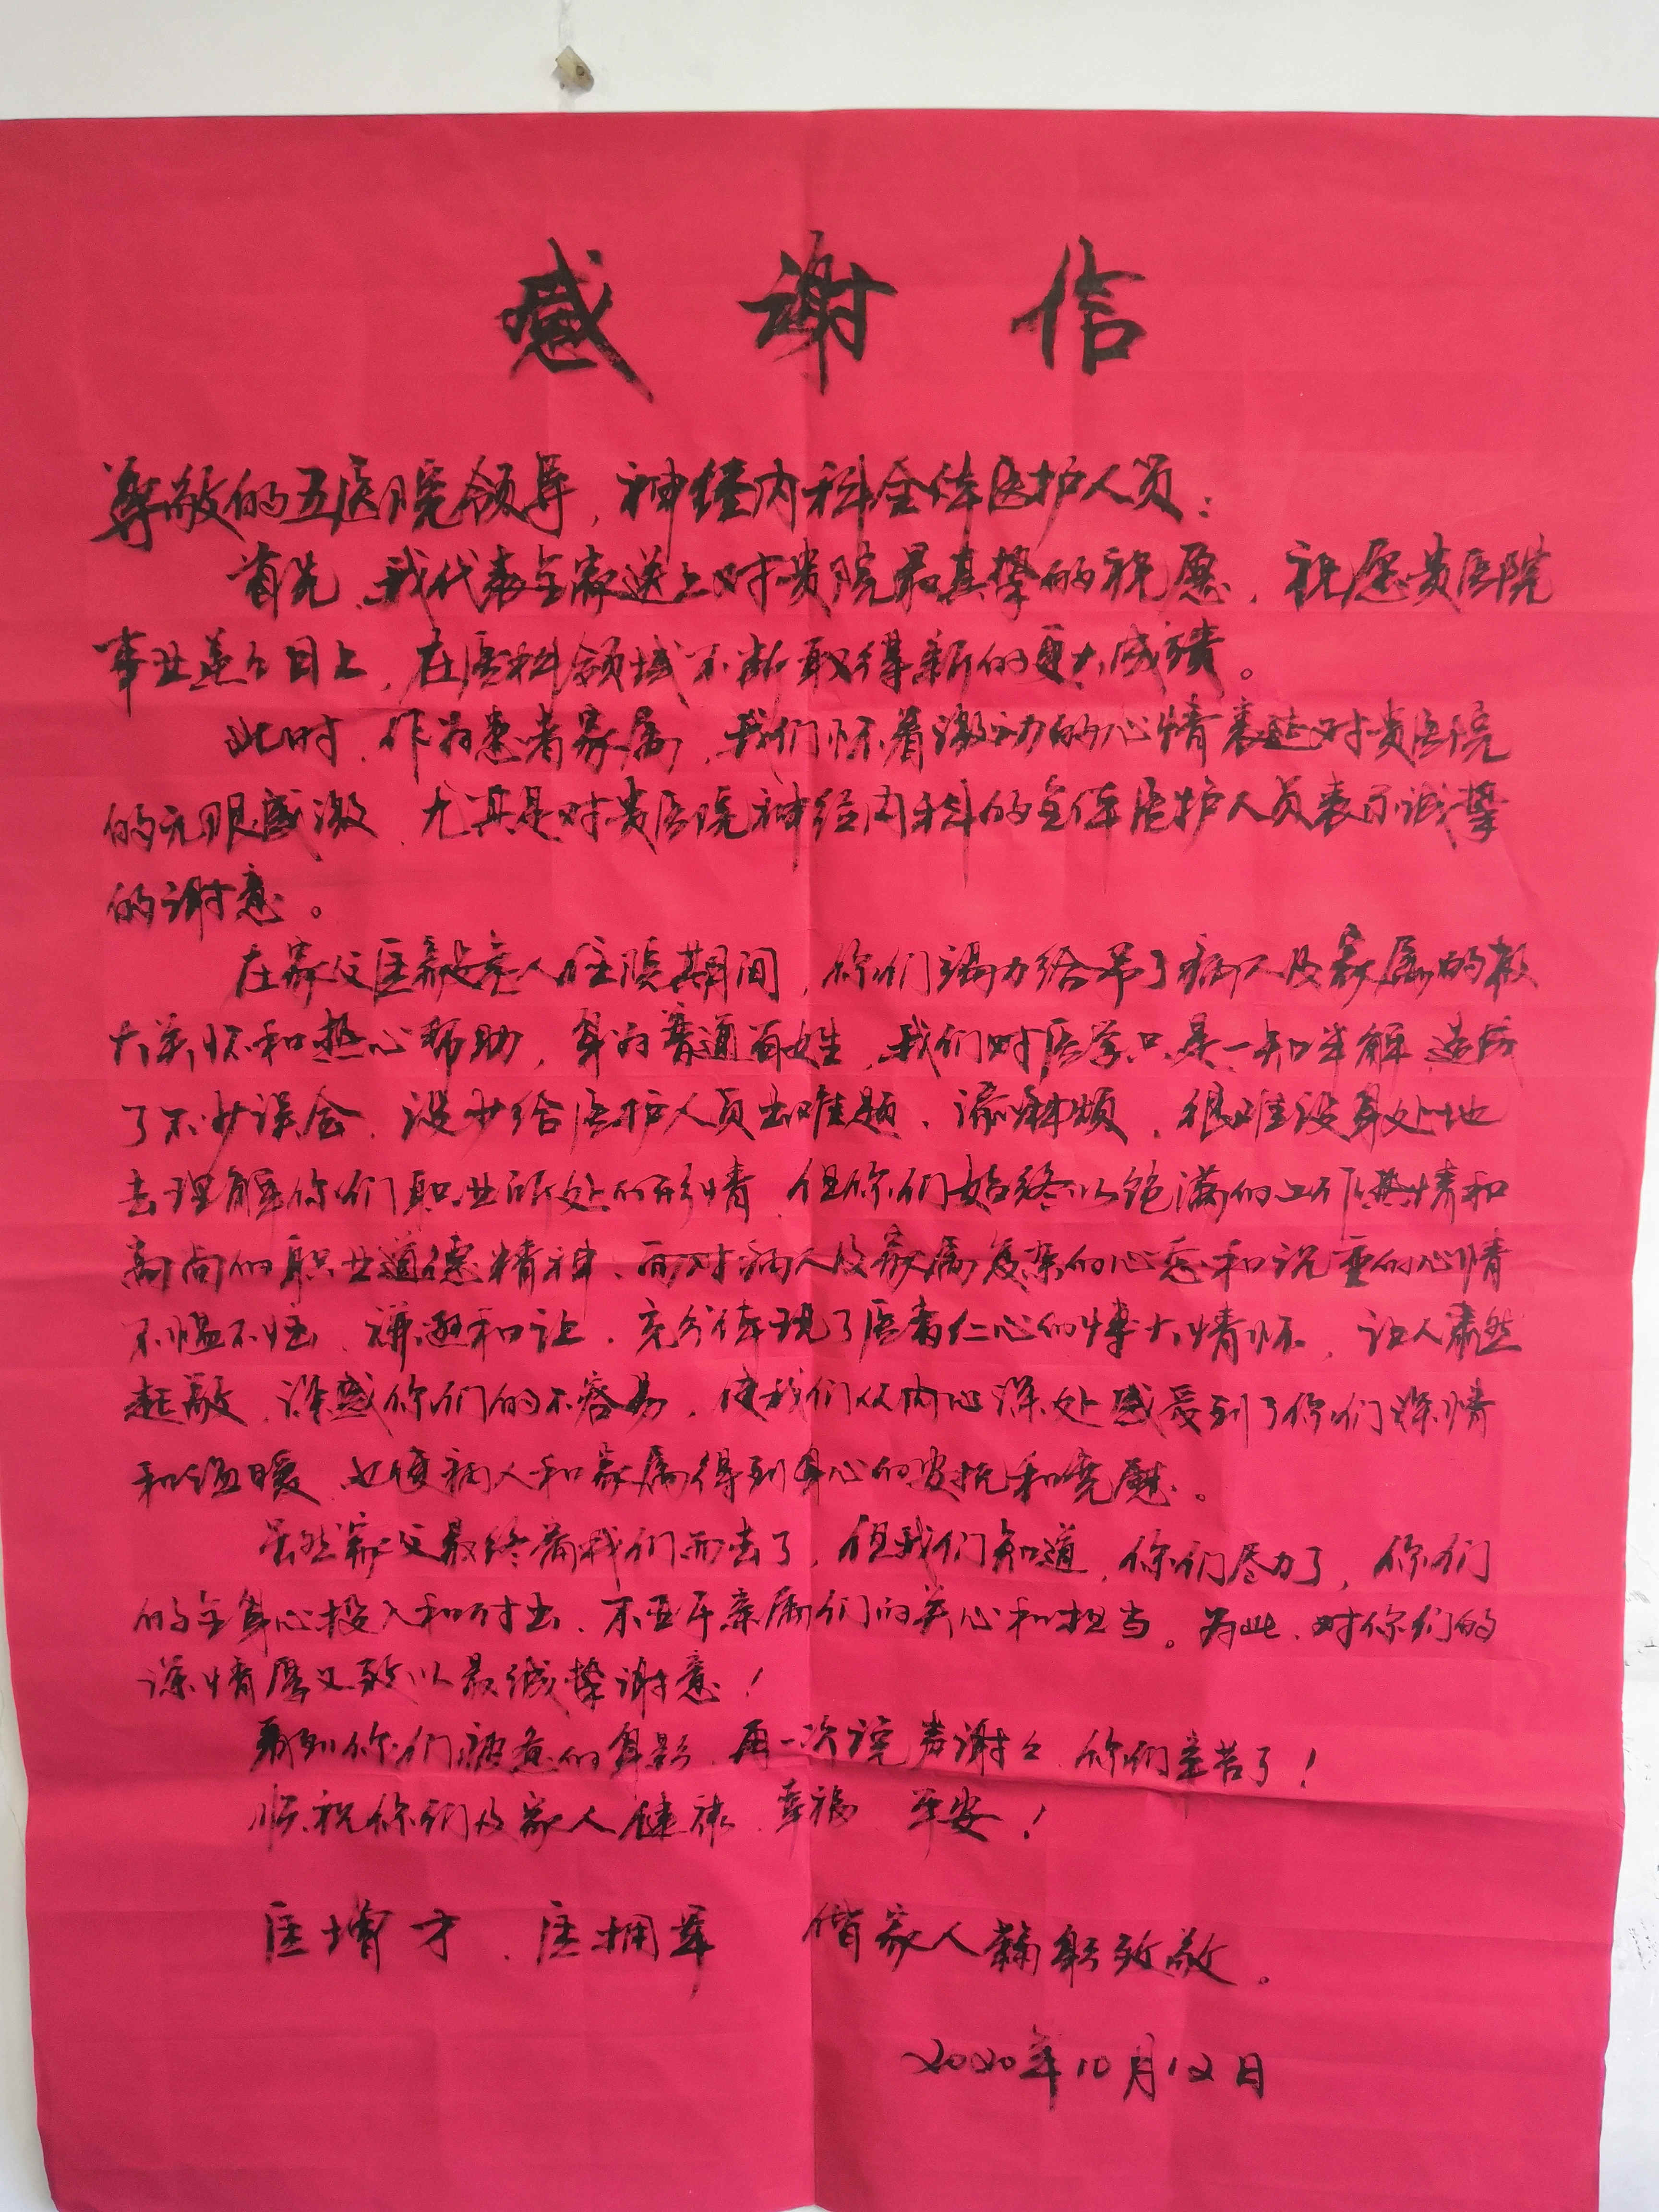 感谢信
尊敬的五医院领导，神经内科全体医护人员：
首先，我代表全家送上对贵院最真挚的祝愿，祝愿贵医院
事业蒸蒸日上，在医科领域不断取得新的更大成绩。
此时，作为患者家属，我们怀着激动的心情表达对贵医院
的无限感激，尤其是对贵医院神经内科的全体医护人员表示诚挚
的谢意。
在家父匡老人住院期间，你们竭力给予了病人及家属的极
大关怀和热心帮助，身为普通百姓，我们对医学只是一知半解，造成
了不少误会，没少给医护人员出难题、添麻烦，很难设身处地
去理解你们职业所处的形情，但你们始终以饱满的工作热情和
高尚的职业道德精神，面对病人及家属复杂的心态和沉重的心情
不愠不怪、谦逊和让，充分体现了医者仁心的博大情怀，让人肃然
起敬，深感你们的不容易，使我们从内心深处感受到了你们深情
和温暖，也使病人和家属得到身心的安抚和宽慰。
虽然家父最终离我们而去了，但我们知道，你们尽力了，你们
的全身心投入和付出，不亚于亲属们的关心和担当。为此，对你们的
深情厚义致以最诚挚谢意！
看到你们疲惫的身影，再一次说声谢谢，你们辛苦了！
顺祝你们及家人健康、幸福、平安！
匡增才、匡拥军 偕家人鞠躬致敬。
2020年10月12日